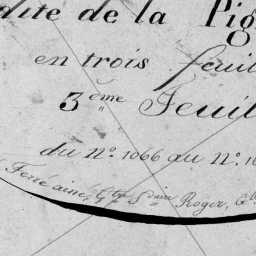 dite de la Pig
en trois feuil
3ème Feuil
du N° 1066 au N° 1
Ferré ainé, Roger,